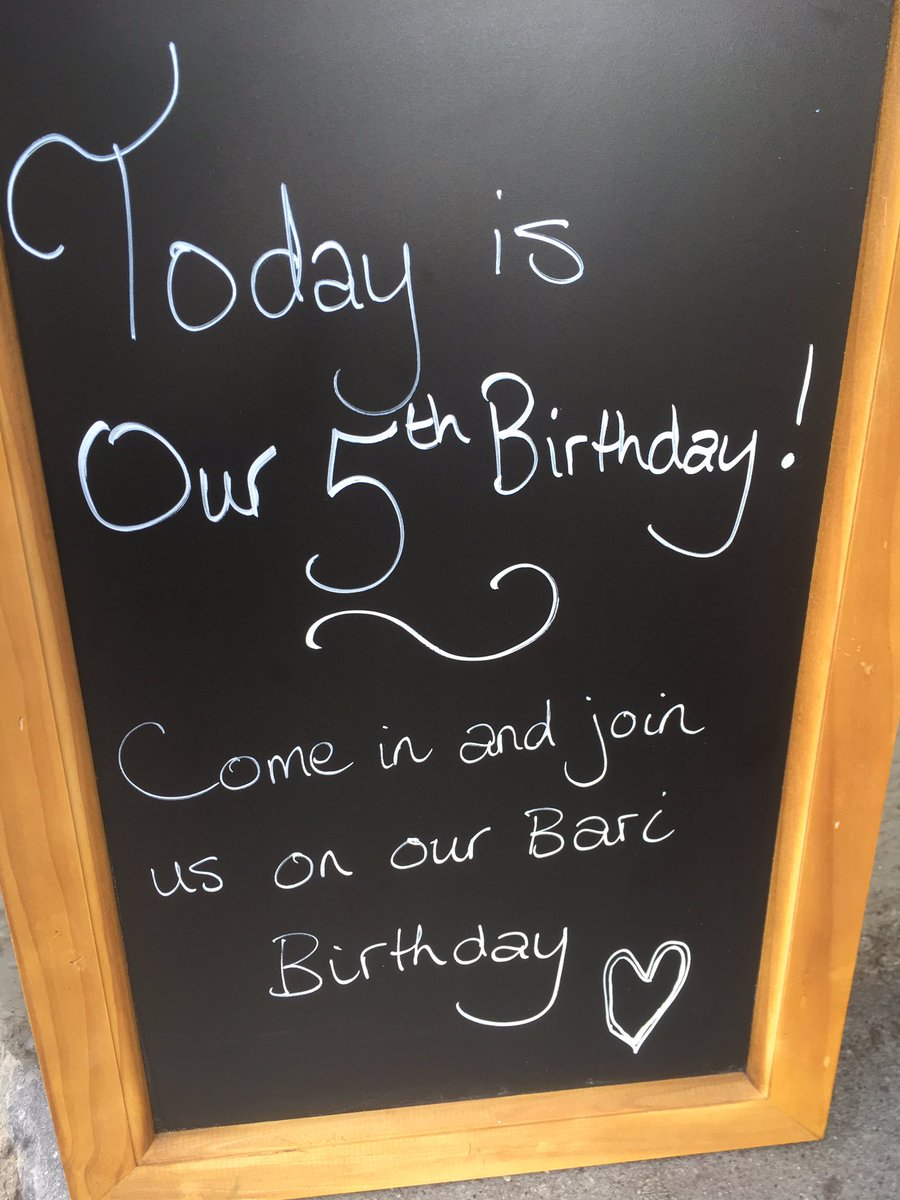 Today is
Our 5th Birthday!
Come in and join
us on our Bari
Birthday